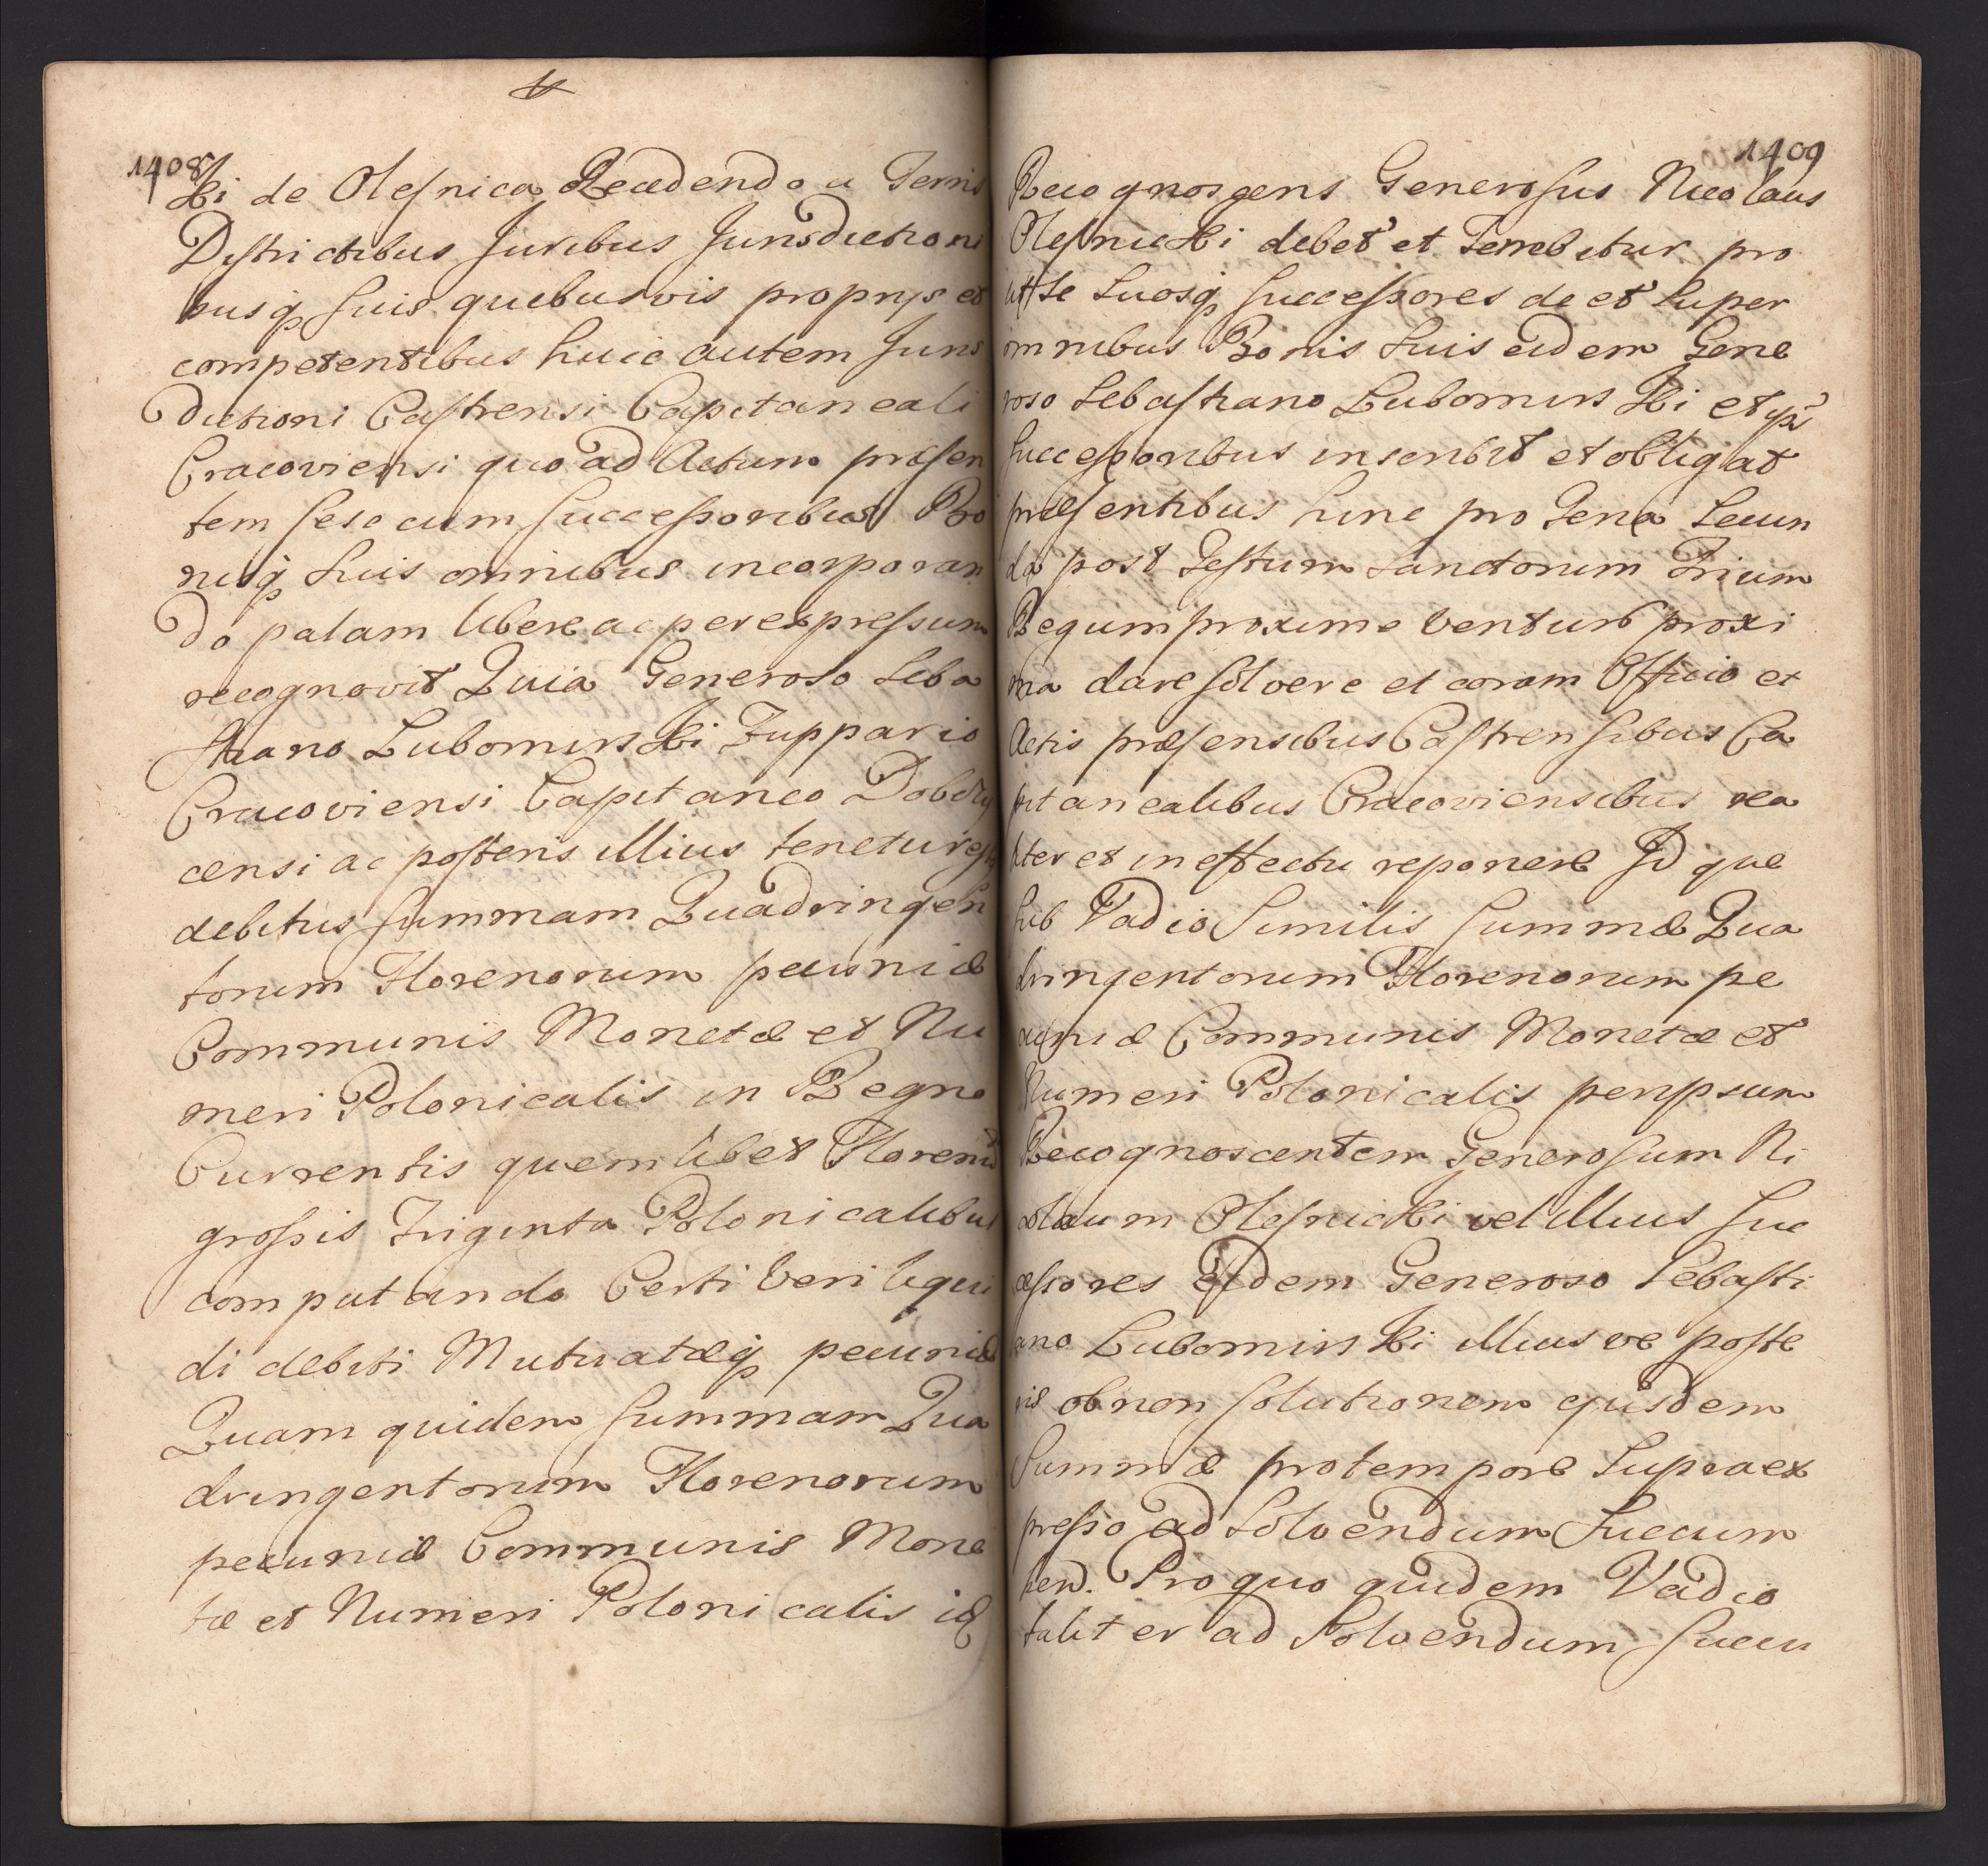 1408
ki de Oleſnica Recedendo a Terris
Diſtrictibus Juribus Jurisdictioni
busq, ſuis quibusvis proprijs et
competentibus huic autem Juris
dictioni Caſtrensi Capitaneali
Cracoviensi quo ad Actum præſen
tem ſese cum ſucceſsoribus Bo
nisq, suis omnibus incorporan
do palam libere ac per expreſsum
recognovit Quia Generoso Seba
ſtiano Lubomirski Zuppario
Cracoviensi Capitaneo Dobczy
censi ac poſteris illius tenetur eſtq,
debitus ſummam Quadringen
torum Florenorum pecuniæ
Communis Monetæ et Nu
meri Polonicalis in Regno
Currentis quemlibet Florenū
groſsis Triginta Polonicalibus
computando Certi veri liqui
di debiti Mutuatæq, pecuniæ
Quam quidem ſummam Qua
dringentorum Florenorum
pecuniæ Communis Mone
tæ et Numeri Polonicalis id
1409
Recognosgens Generoſus Nicolaus
Oleſnicki debet et Tenebitur pro
ut se Suosq, ſucceſsores de et super
omnibus Bonis suis eidem Gene
roso Sebaſtiano Lubomirski et ips
ſucceſsoribus inscribit et obligat
præſentibus hinc pro Feria Secun
da post Feſtum Sanctorum Trium
Regum proxime venturo proxi
ma dare ſolvere et coram Officio et
Actis præſensibus Caſtrenſibus Ca
pitanealibus Cracoviensibus rea
liter et in effectu reponere Id que
ſub Vadio Similis ſummæ Qua
dringentorum Florenorum pe
cuniæ Communis Monetæ et
Numeri Polonicalis per ipsum
Recognoscentem Generoſum Ni
colaum Oleſnicki vel illius ſuc
ceſsores Eidem Generoso Sebaſti
ano Lubomirski illiusve poſte
ris ob non ſolutionem ejusdem
Summæ pro tempore Supraex
preſso ad Solvendum Succum
ben̄. Pro quo quidem Vadio
taliter ad Solvendum ſuccu